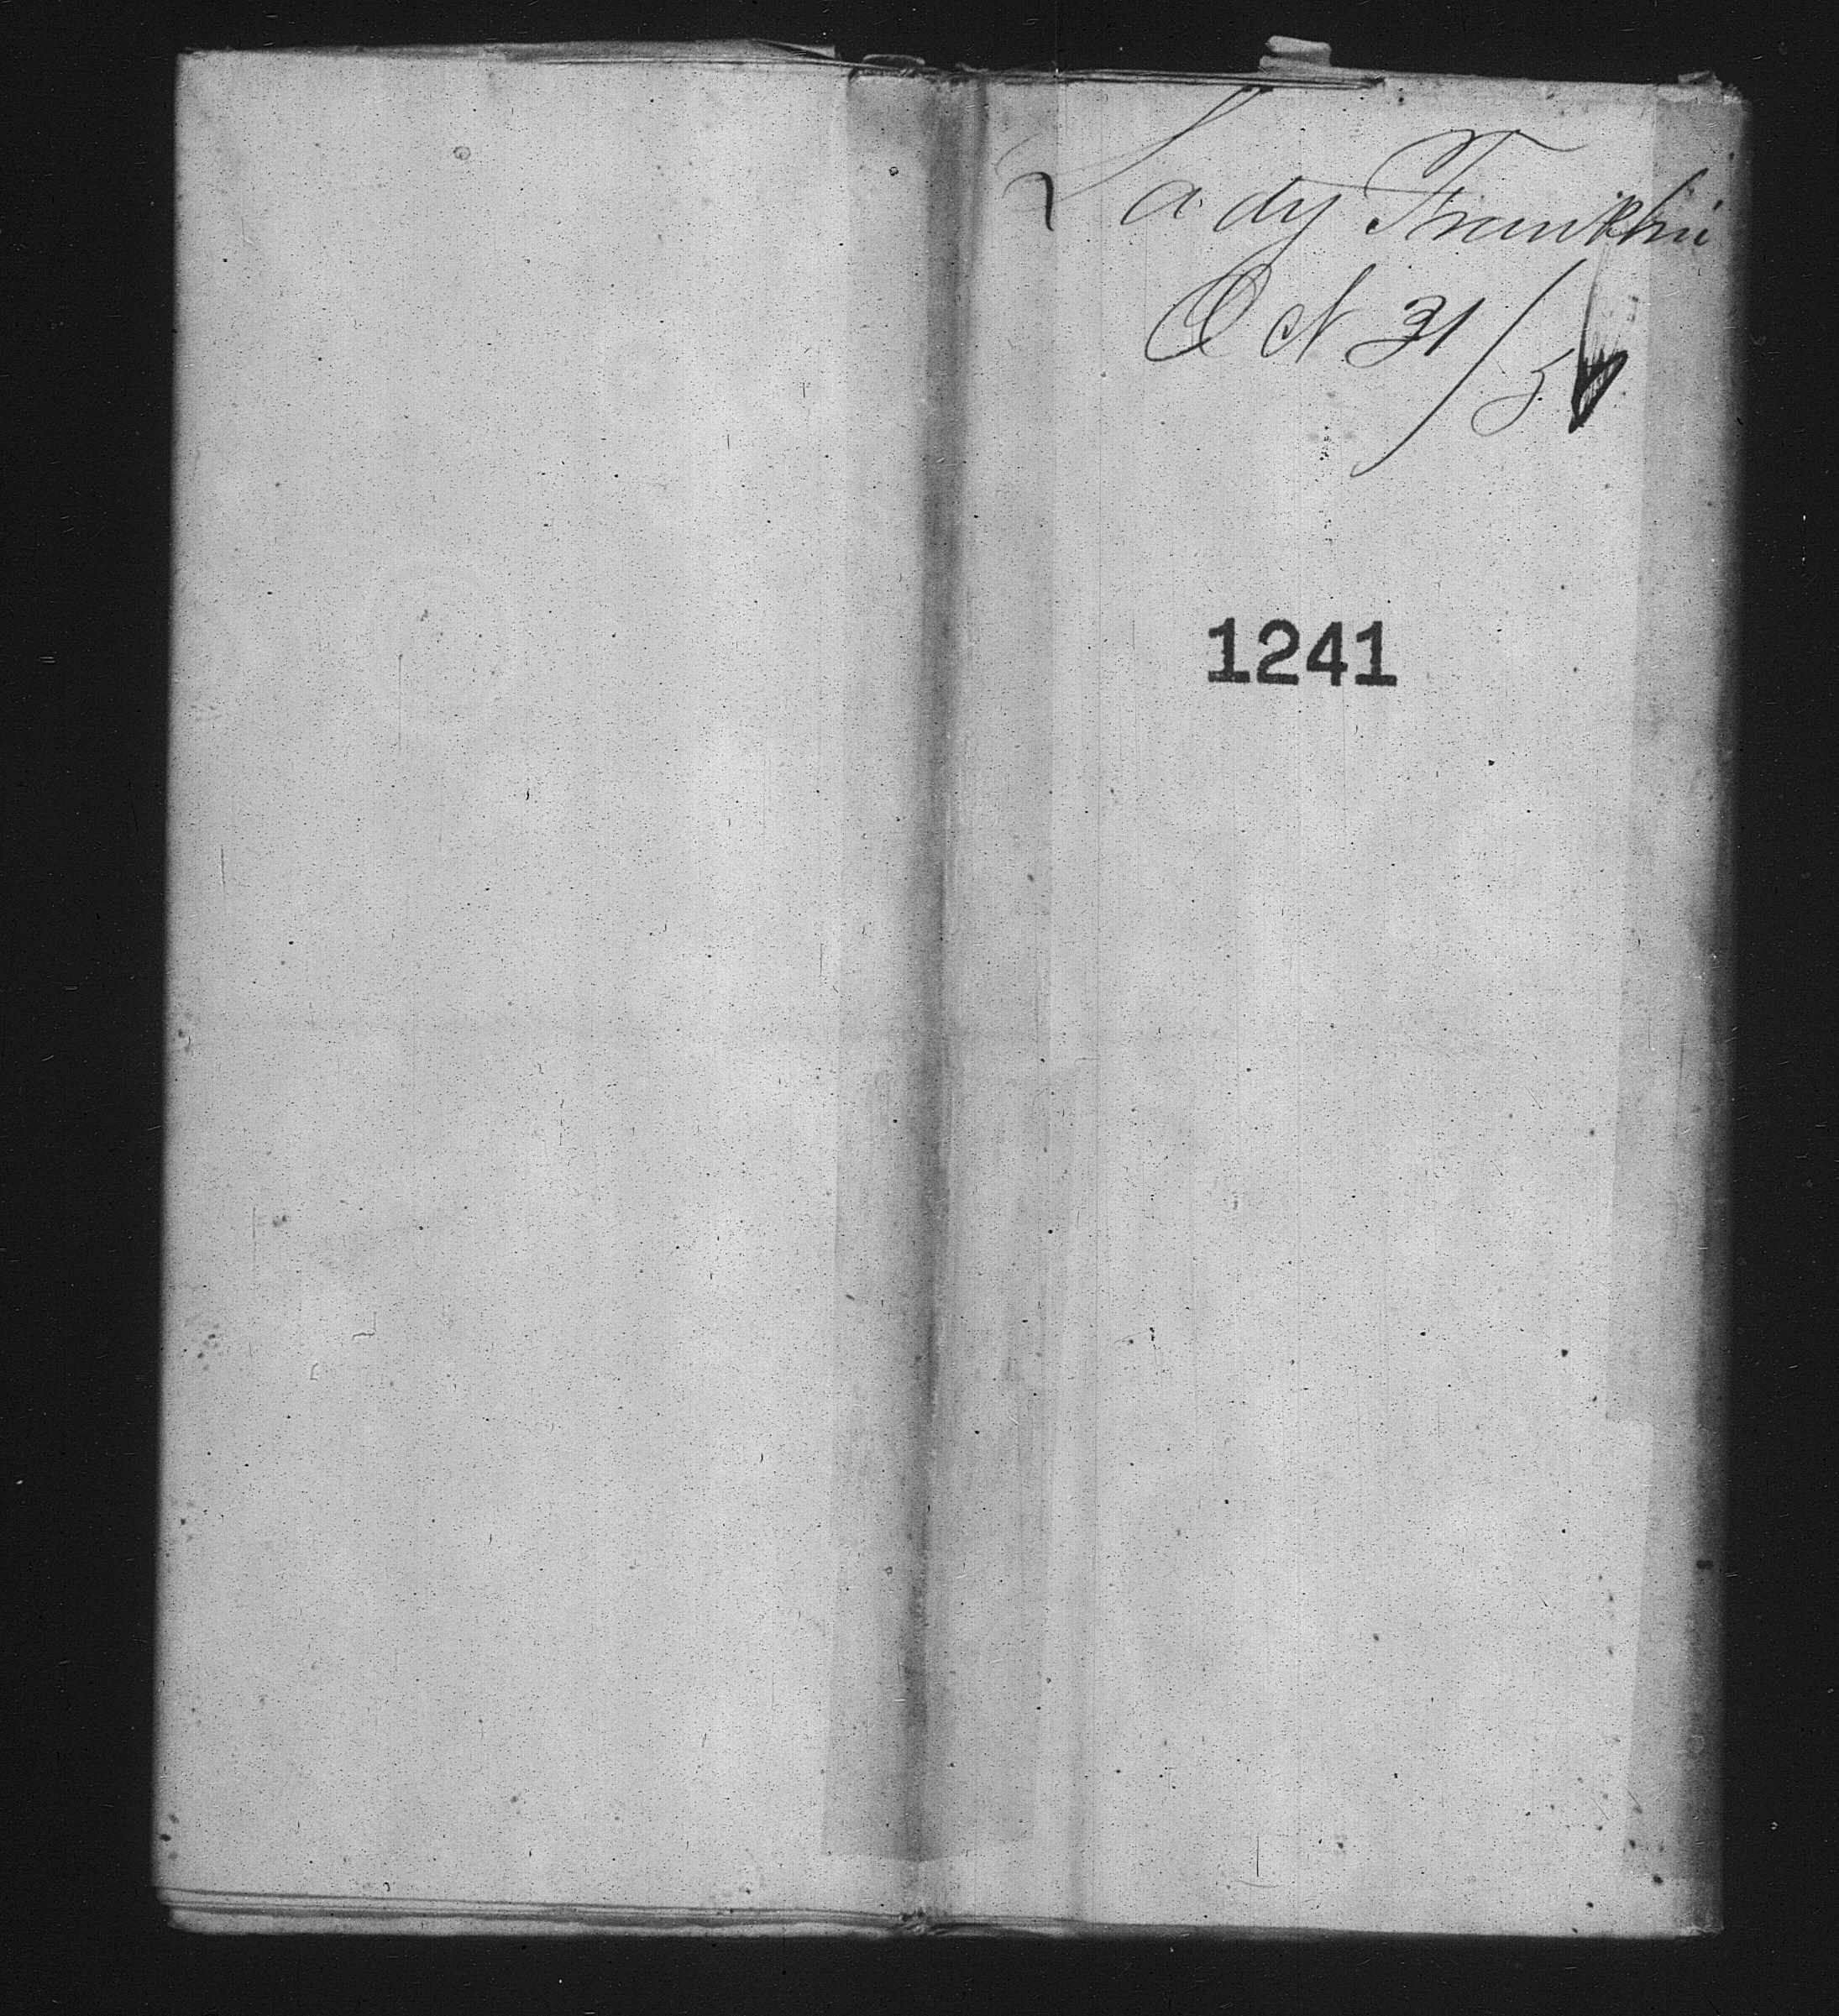 Lady Franklin
Oct 31/
1241